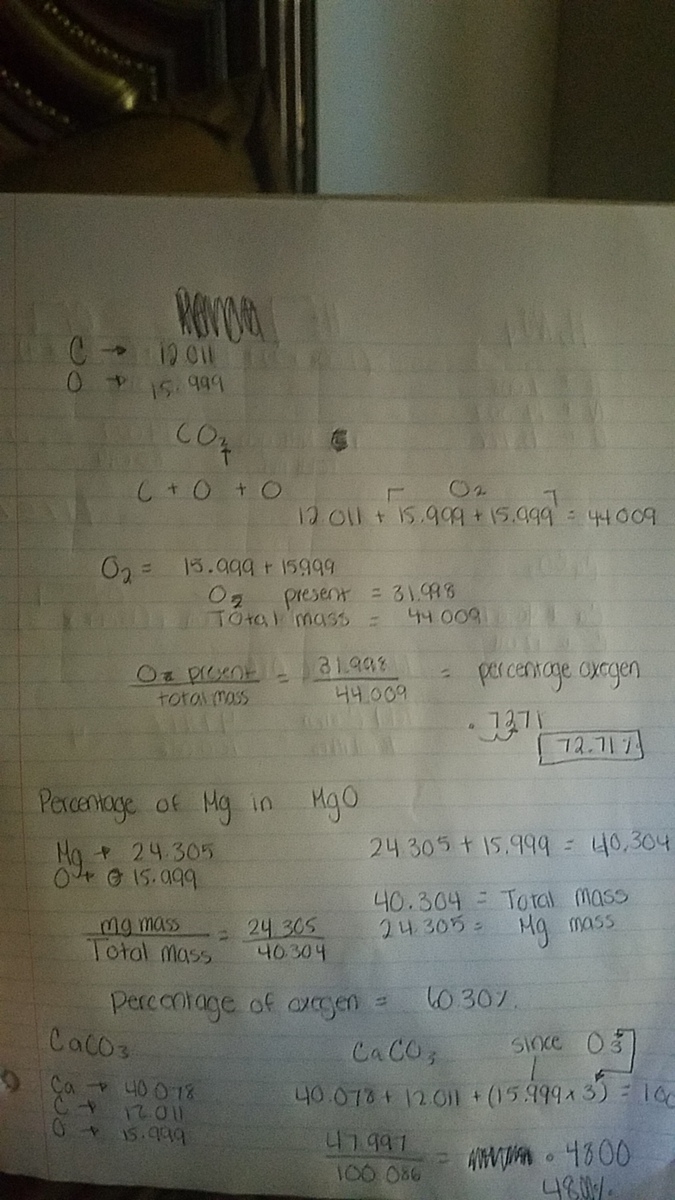 C → 12.011
O → 15.999
CO2
C + O + O
O2
12.011 + 15.999 + 15.999 = 44.009
O2 = 15.999 + 15.999
O2 present = 31.998
Total mass = 44.009
O2 present / total mass = 31.998 / 44.009 = percentage oxogen
.7271
72.71%
Percentage of Mg in MgO
Mg → 24.305
O → 15.999
24.305 + 15.999 = 40.304
40.304 = Total mass
24.305 = Mg mass
mg mass / Total mass = 24.305 / 40.304
Percentage of oxogen = 60.30%.
CaCO3
Ca → 40.078
C → 12.011
O → 15.999
CaCO3 since O3
40.078 + 12.011 + (15.999 x 3) = 100
47.997 / 100.086 = .4800
48.00%